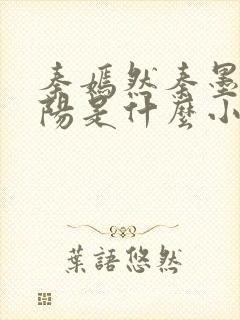 秦嫣然秦墨
陽是什麼小
葉語悠然